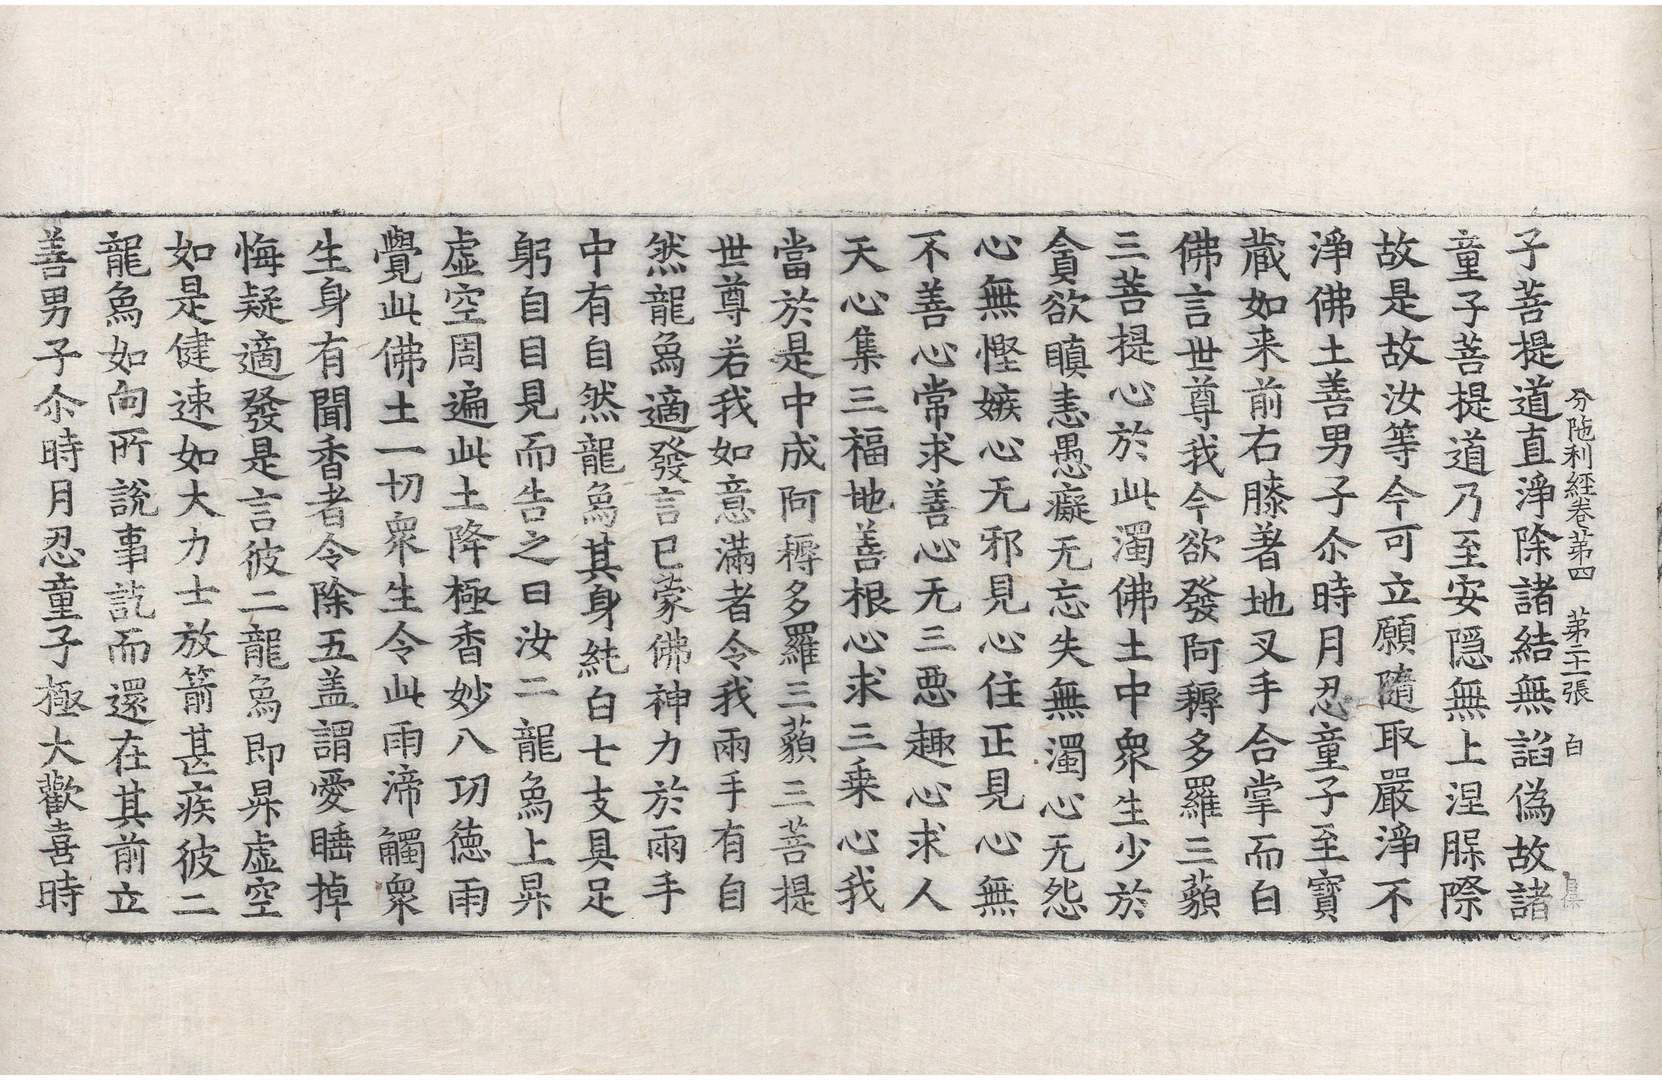 分陁利經卷第四 第二十一張 白
子菩提道直淨除諸結無諂偽故諸
童子菩提道乃至安隱無上涅脲際
故是故汝等今可立願隨取嚴淨不
淨佛土善男子尒時月忍童子至寶
蔵如来前右膝著地叉手合掌而白
佛言世尊我今欲發阿耨多羅三藐
三菩提心於此濁佛土中衆生少於
貪欲瞋恚愚癡无忘失無濁心无怨
心無慳嫉心无邪見心住正見心無
不善心常求善心无三惡趣心求人
天心集三福地善根心求三乗心我
當於是中成阿耨多羅三藐三菩提
世尊若我如意滿者令我兩手有自
然龍象適發言已蒙佛神力於兩手
中有自然龍象其身純白七支具足
躬自目見而告之曰汝二龍象上昇
虛空周遍此土降極香妙八功徳雨
覺此佛土一切衆生令此雨渧觸衆
生身有聞香者令除五盖謂愛睡掉
悔疑適發是言彼二龍象即昇虛空
如是健速如大力士放箭甚疾彼二
龍象如向所說事訖而還在其前立
善男子尒時月忍童子極大歡喜時